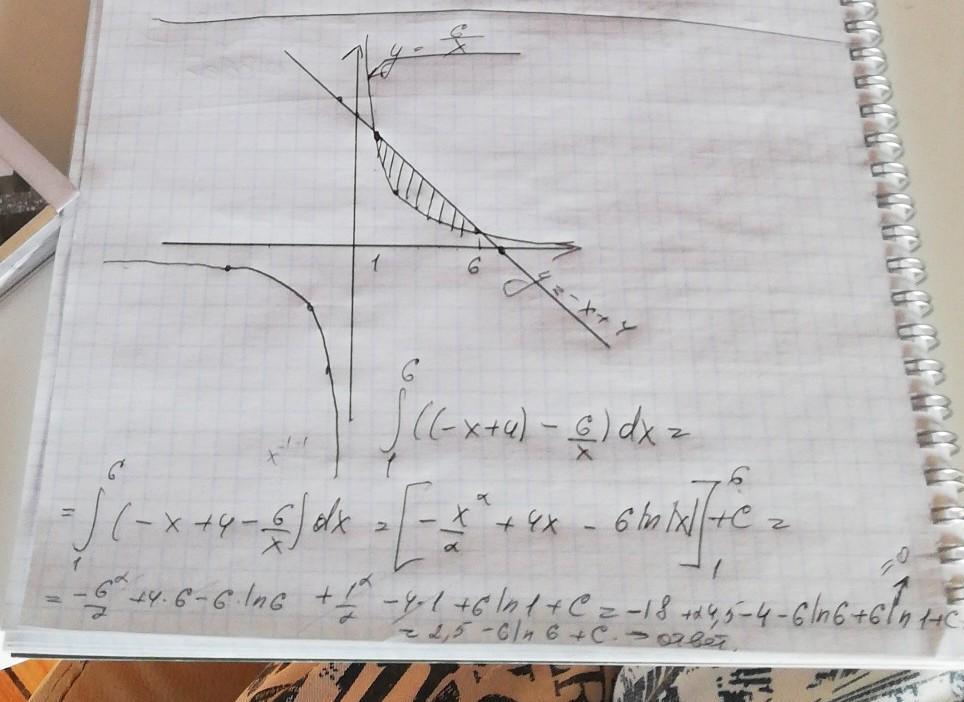 y = 6/x
1 6
y = -x + 4
x⁻¹⁻¹
∫₁⁶ ((-x+4) - 6/x) dx =
= ∫₁⁶ (-x + 4 - 6/x) dx = [-x²/2 + 4x - 6 ln|x|]₁⁶ + C =
= -6²/2 + 4·6 - 6·ln6 + 1²/2 - 4·1 + 6 ln1 + C = -18 + 24,5 - 4 - 6 ln6 + 6 ln1 + C
=0
= 2,5 - 6 ln 6 + C. → ответ.